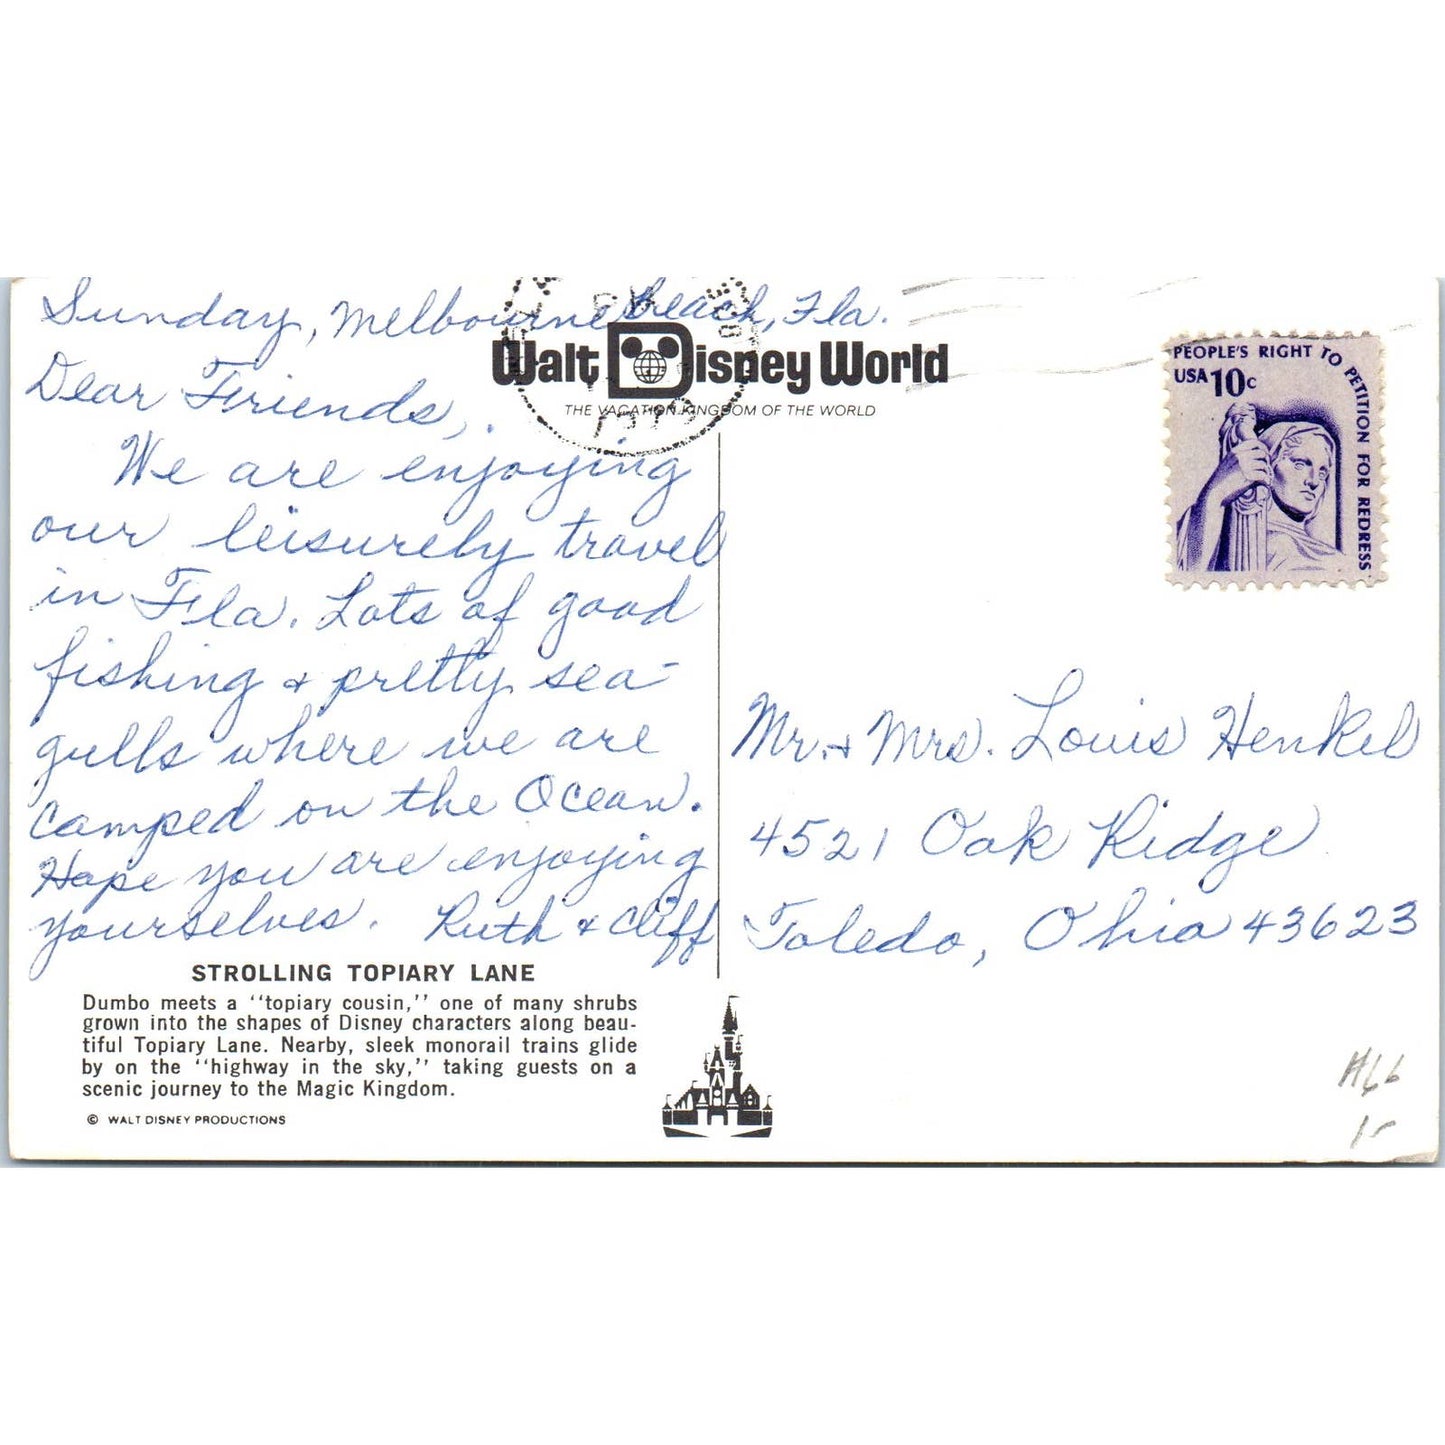 Sunday, Melbourne Beach, Fla.
Dear Friends,
We are enjoying
our leisurely travel
in Fla. Lots of good
fishing & pretty sea-
gulls where we are
camped on the Ocean.
Hope you are enjoying
yourselves. Ruth & Cliff
STROLLING TOPIARY LANE
Dumbo meets a "topiary cousin," one of many shrubs
grown into the shapes of Disney characters along beau-
tiful Topiary Lane. Nearby, sleek monorail trains glide
by on the "highway in the sky," taking guests on a
scenic journey to the Magic Kingdom.
© WALT DISNEY PRODUCTIONS
Walt Disney World
THE VACATION KINGDOM OF THE WORLD
PM
PEOPLE'S RIGHT TO PETITION FOR REDRESS
USA 10c
Mr. & Mrs. Louis Henkel
4521 Oak Ridge
Toledo, Ohio 43623